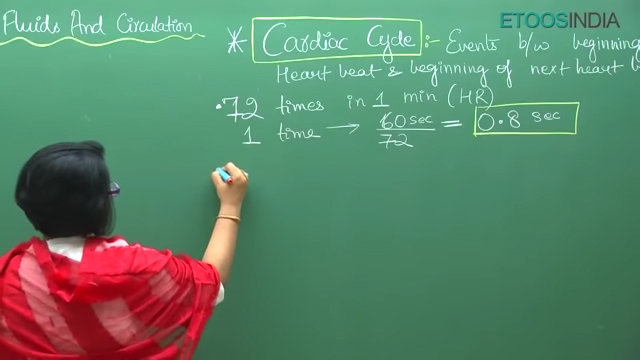 ETOOSINDIA
Fluids And Circulation
* Cardiac Cycle :- Events b/w beginning
Heart beat & beginning of next heart b
.72 times in 1 min (HR)
1 time → 60 sec / 72 = 0.8 sec